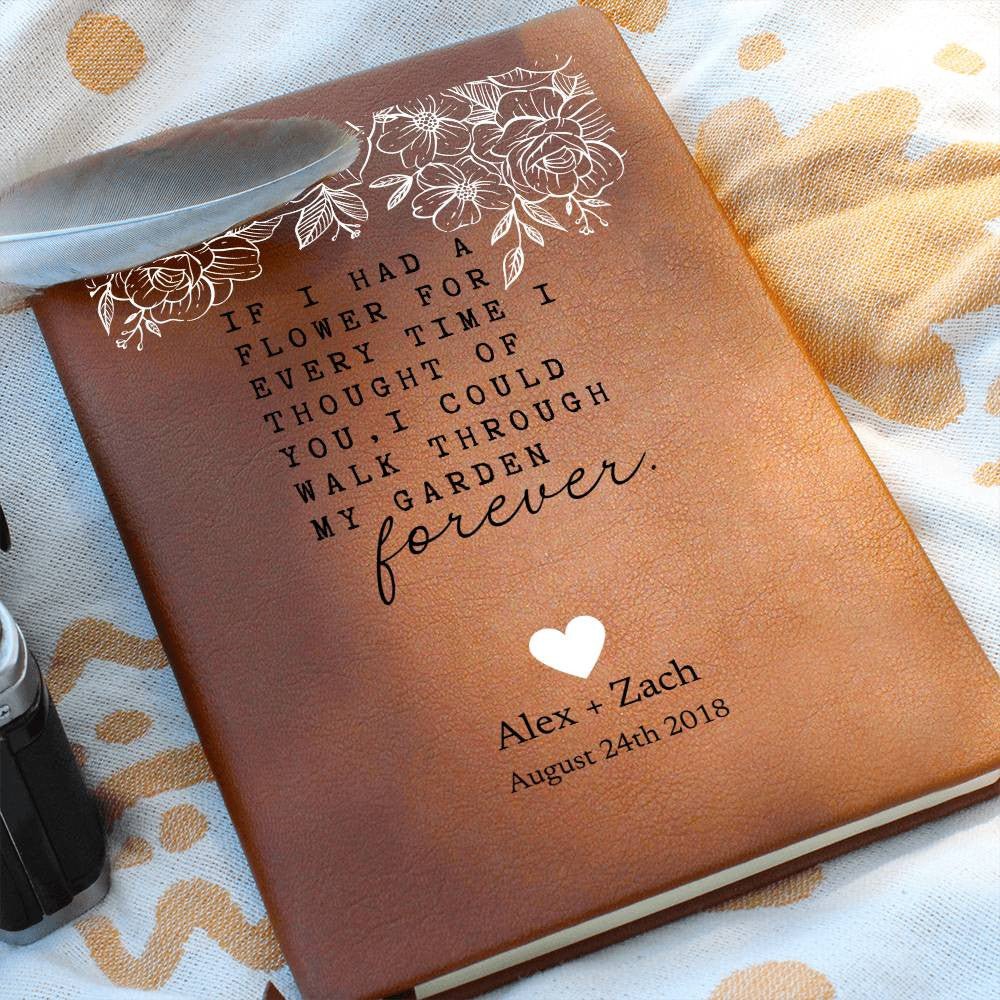 IF I HAD A
FLOWER FOR
EVERY TIME I
THOUGHT OF
YOU,I COULD
WALK THROUGH
MY GARDEN
forever.
Alex + Zach
August 24th 2018